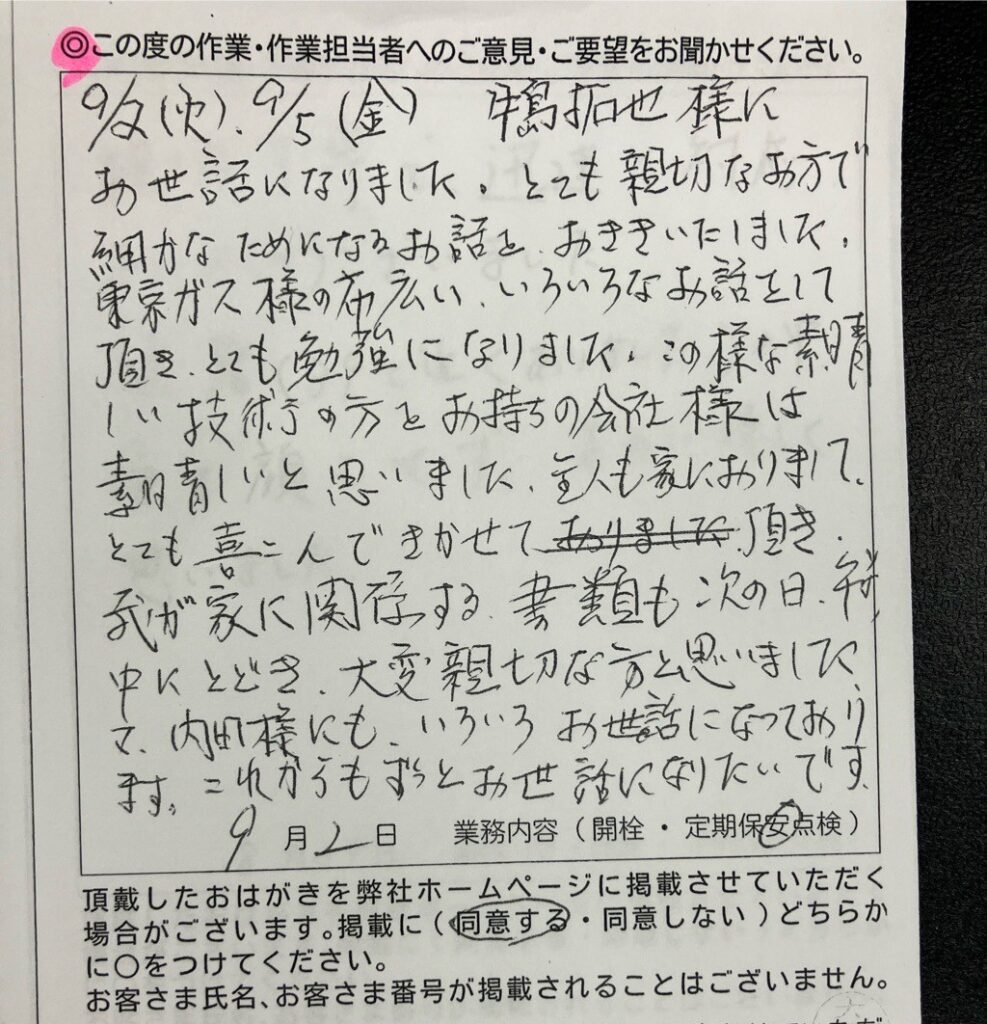 ◎この度の作業・作業担当者へのご意見・ご要望をお聞かせください。
9/2(火)、9/5(金) 鴨拓也様に
お世話になりました。とても親切なお方で
細かなためになるお話をおききいたしました。
東京ガス様の布広い、いろいろなお話をして
頂き、とても勉強になりました。この様な素晴
しい技術の方をお持ちの会社様は
素晴しいと思いました。主人も家におりまして、
とても喜こんできかせておりました頂き、
我が家に関係する、書類も次の日、午
中にとどき、大変親切な方と思いました
て、内田様にも、いろいろお世話になっており
ます。これからもずっとお世話になりたいです。
9月2日 業務内容(開栓・定期保安点検)
頂戴したおはがきを弊社ホームページに掲載させていただく
場合がございます。掲載に(同意する・同意しない)どちらか
に○をつけてください。
お客さま氏名、お客さま番号が掲載されることはございません。